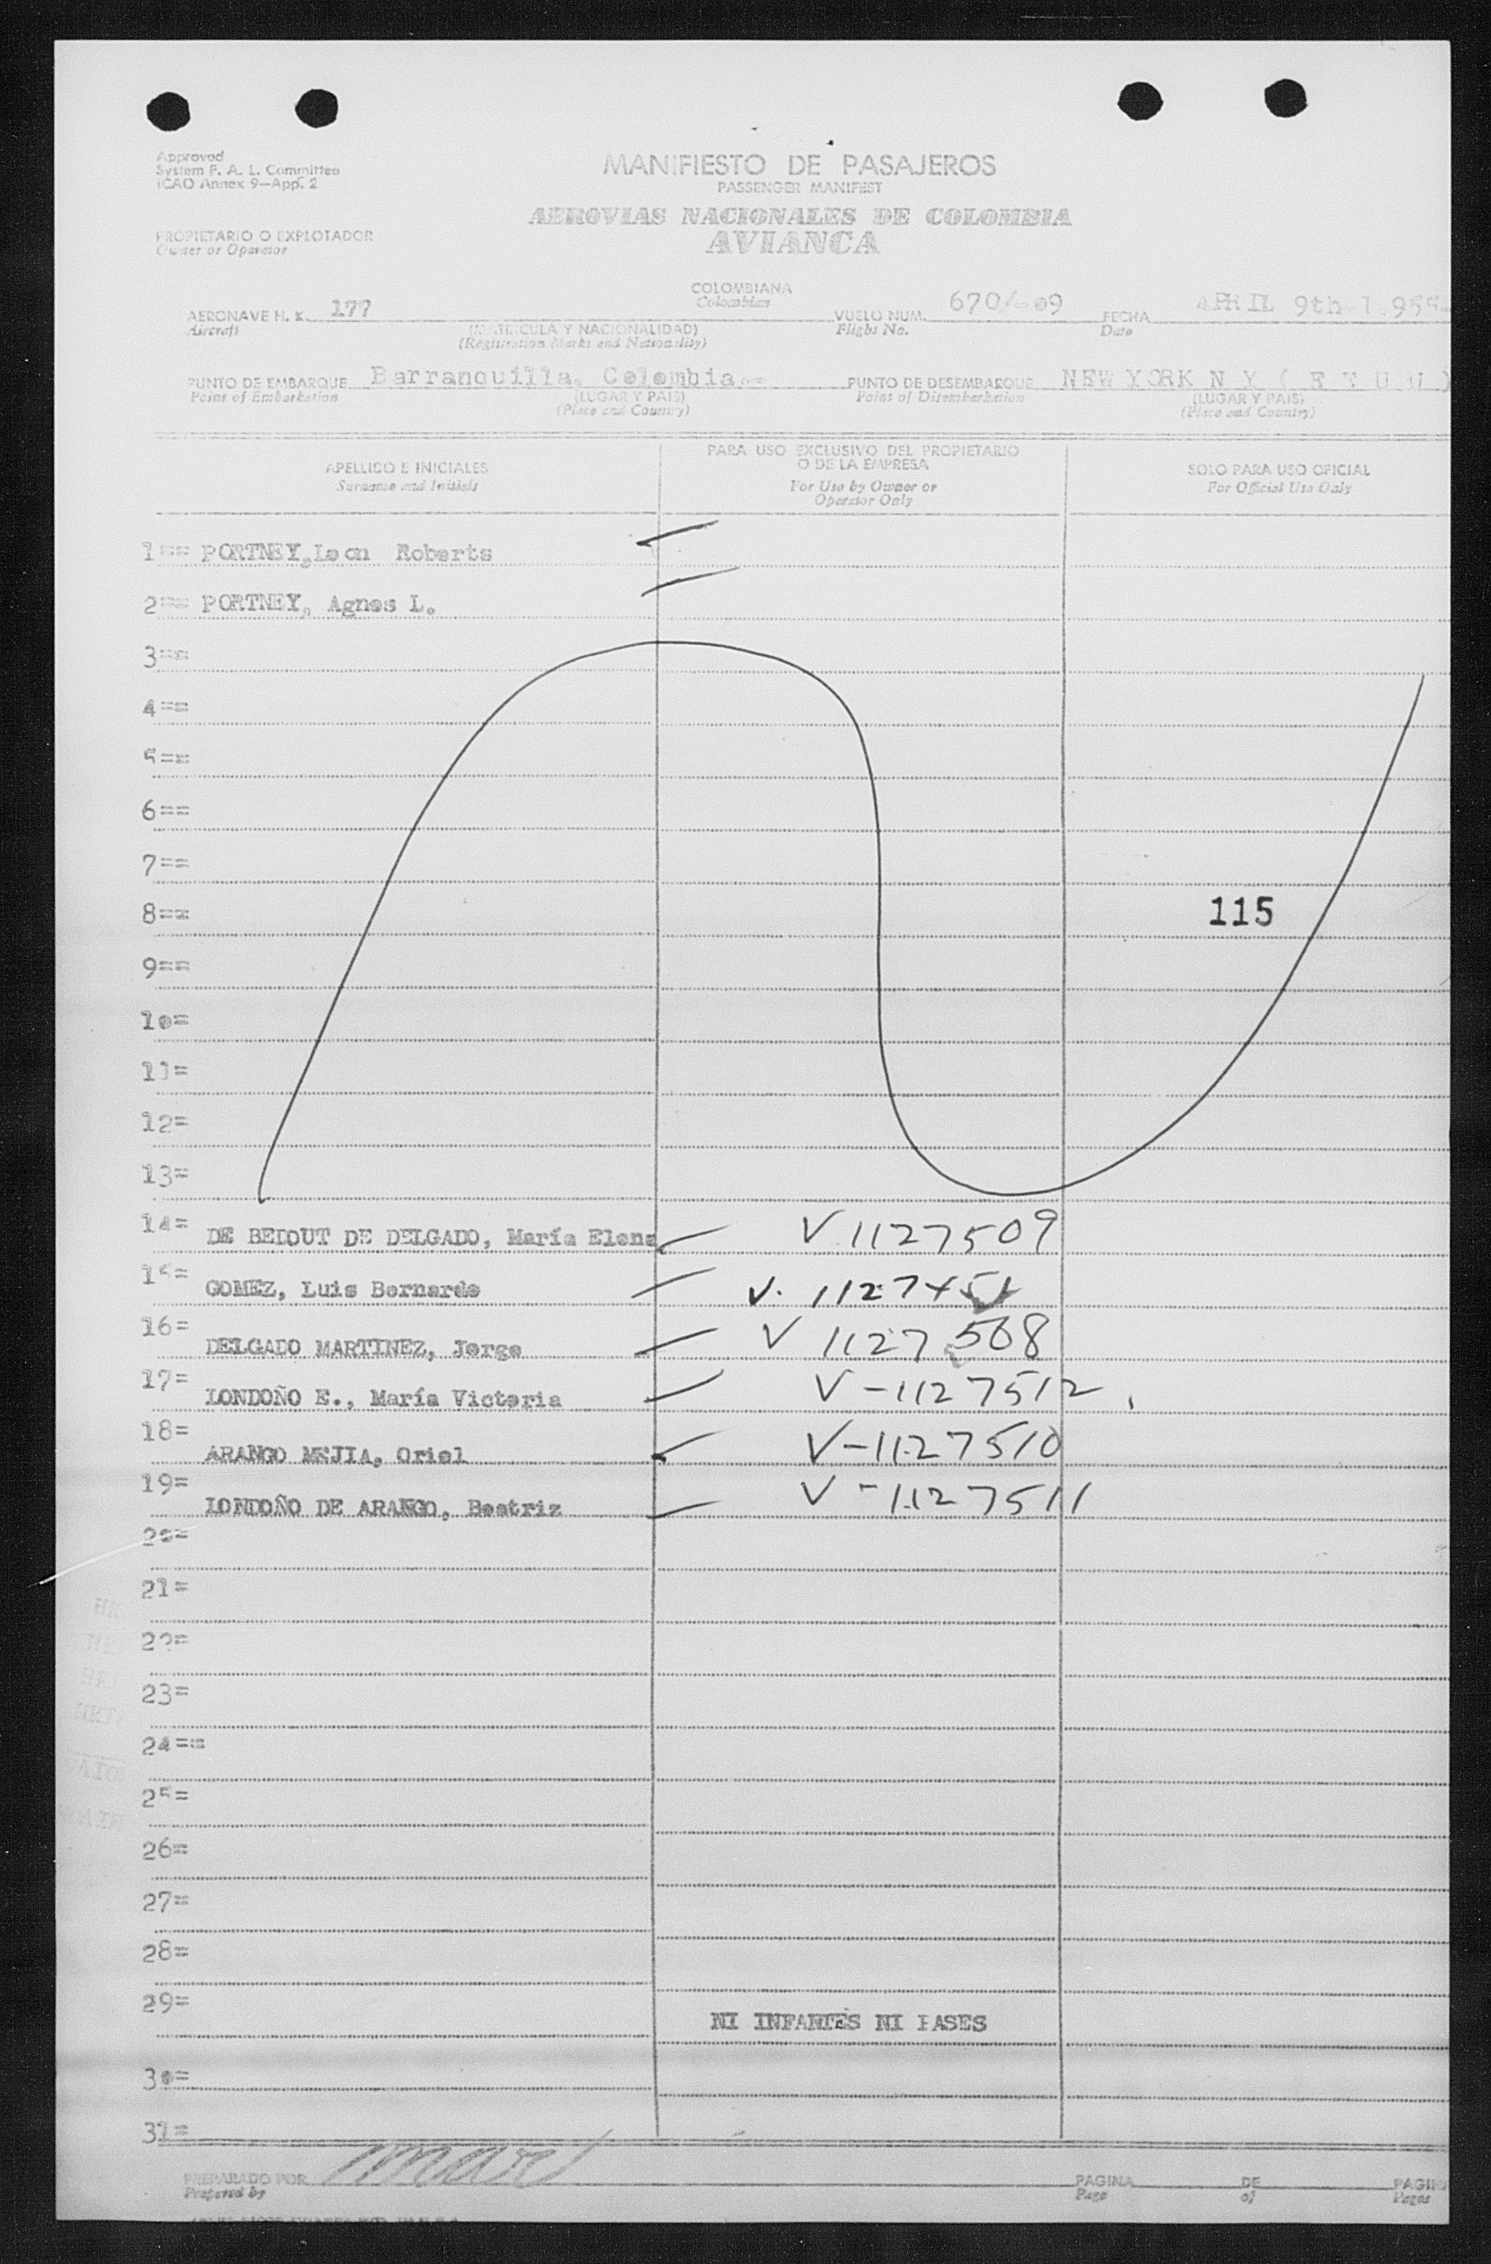 Approved
System F. A. L. Committee
ICAO Annex 9—App. 2
MANIFIESTO DE PASAJEROS
PASSENGER MANIFEST
AEROVIAS NACIONALES DE COLOMBIA
AVIANCA
PROPIETARIO O EXPLOTADOR
Owner or Operator
COLOMBIANA
Colombian
AERONAVE H. K. 177 VUELO NUM. 670/ FECHA APRIL 9th
Aircraft (MATRICULA Y NACIONALIDAD) Flight No. Date
(Registration Marks and Nationality)
PUNTO DE EMBARQUE Barranquilla, Colombia.-- PUNTO DE DESEMBARQUE NEW YORK N Y ( E E U U )
Point of Embarkation (LUGAR Y PAIS) Point of Disembarkation (LUGAR Y PAIS)
(Place and Country) (Place and Country)
APELLIDO E INICIALES PARA USO EXCLUSIVO DEL PROPIETARIO SOLO PARA USO OFICIAL
Surname and Initials O DE LA EMPRESA For Official Use Only
For Use by Owner or
Operator Only
1== PORTNEY,Leon Roberts
2== PORTNEY, Agnes L.
3==
4==
5==
6==
7==
8== 115
9==
10=
11=
12=
13=
14= DE BEDOUT DE DELGADO, María Elena V 1127509
15= GOMEZ, Luis Bernardo V.
16= DELGADO MARTINEZ, Jorge V 1127508
17= LONDOÑO E., María Victoria V-1127512
18= ARANGO MEJIA, Oriel V-1127510
19= LONDOÑO DE ARANGO, Beatriz V-1127511
20=
21=
22=
23=
24==
25=
26=
27=
28=
29= NI INFANTES NI PASES
30=
31=
PREPARADO POR PAGINA DE
Prepared by Page of Pages